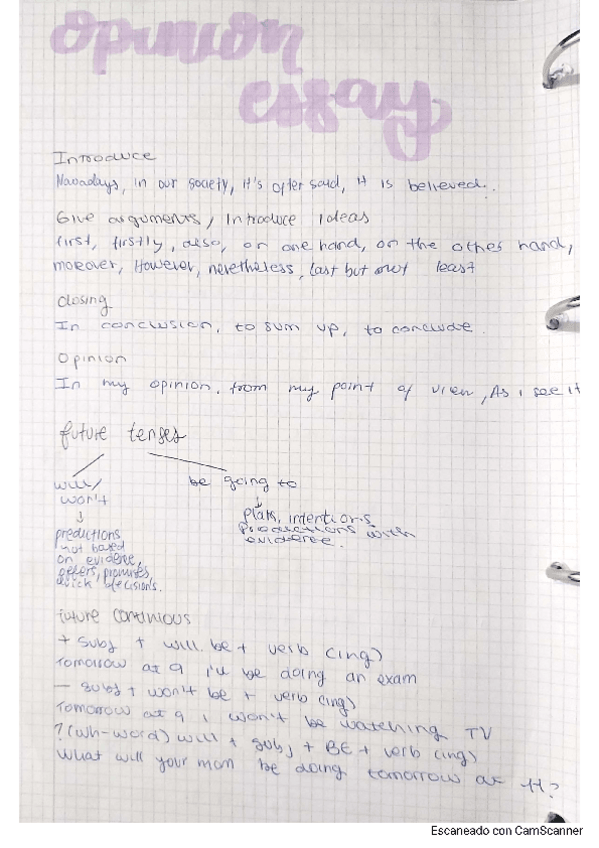 opinion
essay
Introduce
Nawadays, in our society, it's ofter said, it is believed..
Give arguments, Introduce ideas
first, firstly, also, on one hand, on the other hand,
moreover, However, neretheless, last but not least
Closing
In conclusion, to sum up, to conclude.
Opinion
In my opinion, from my point of view, As i see it
future tenses
will/ be going to
won't
plans, intentions
predictions with
evidence.
predictions
not based
on evidence,
offers, promises,
quick decisions.
future continious
+ subj + will be + verb (ing)
Tomorrow at 9 i'll be doing an exam
- subj + won't be + verb (ing)
Tomorrow at 9 i won't be watching TV
? (wh-word) will + subj + BE + verb (ing)
What will your mom be doing tomorrow at 11?
Escaneado con CamScanner